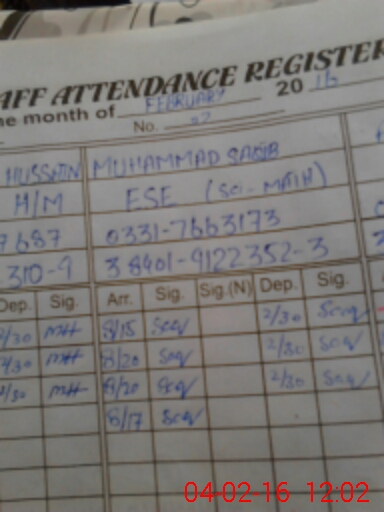 AFF ATTENDANCE REGISTER
he month of FEBRUARY 2016
No. 02
HUSSAIN MUHAMMAD SAQIB
H/M ESE (SCI-MATH)
7687 0331-7663173
310-9 38401-9122352-3
Dep. Sig. Arr. Sig. Sig.(N) Dep. Sig.
2/30 MH 8/15 Saq 2/30 Saq
2/30 MH 8/20 Saq 2/30 Saq
2/30 MH 8/20 Saq 2/30 Saq
8/17 Saq
04-02-16 12:02